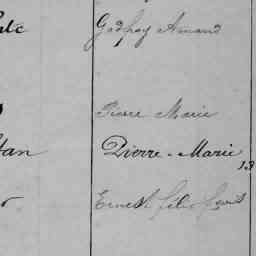 Godfroy Armand
Pierre Marie
tan Pierre-Marie 13
Ernest félix